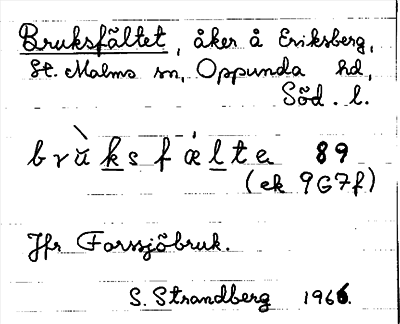 Bruksfältet, åker å Eriksberg,
St. Malms sn, Oppunda hd,
Söd. l.
brùksfæ̍lta 89
(ek 9G7f)
Jfr Forssjöbruk.
S. Strandberg 1966.